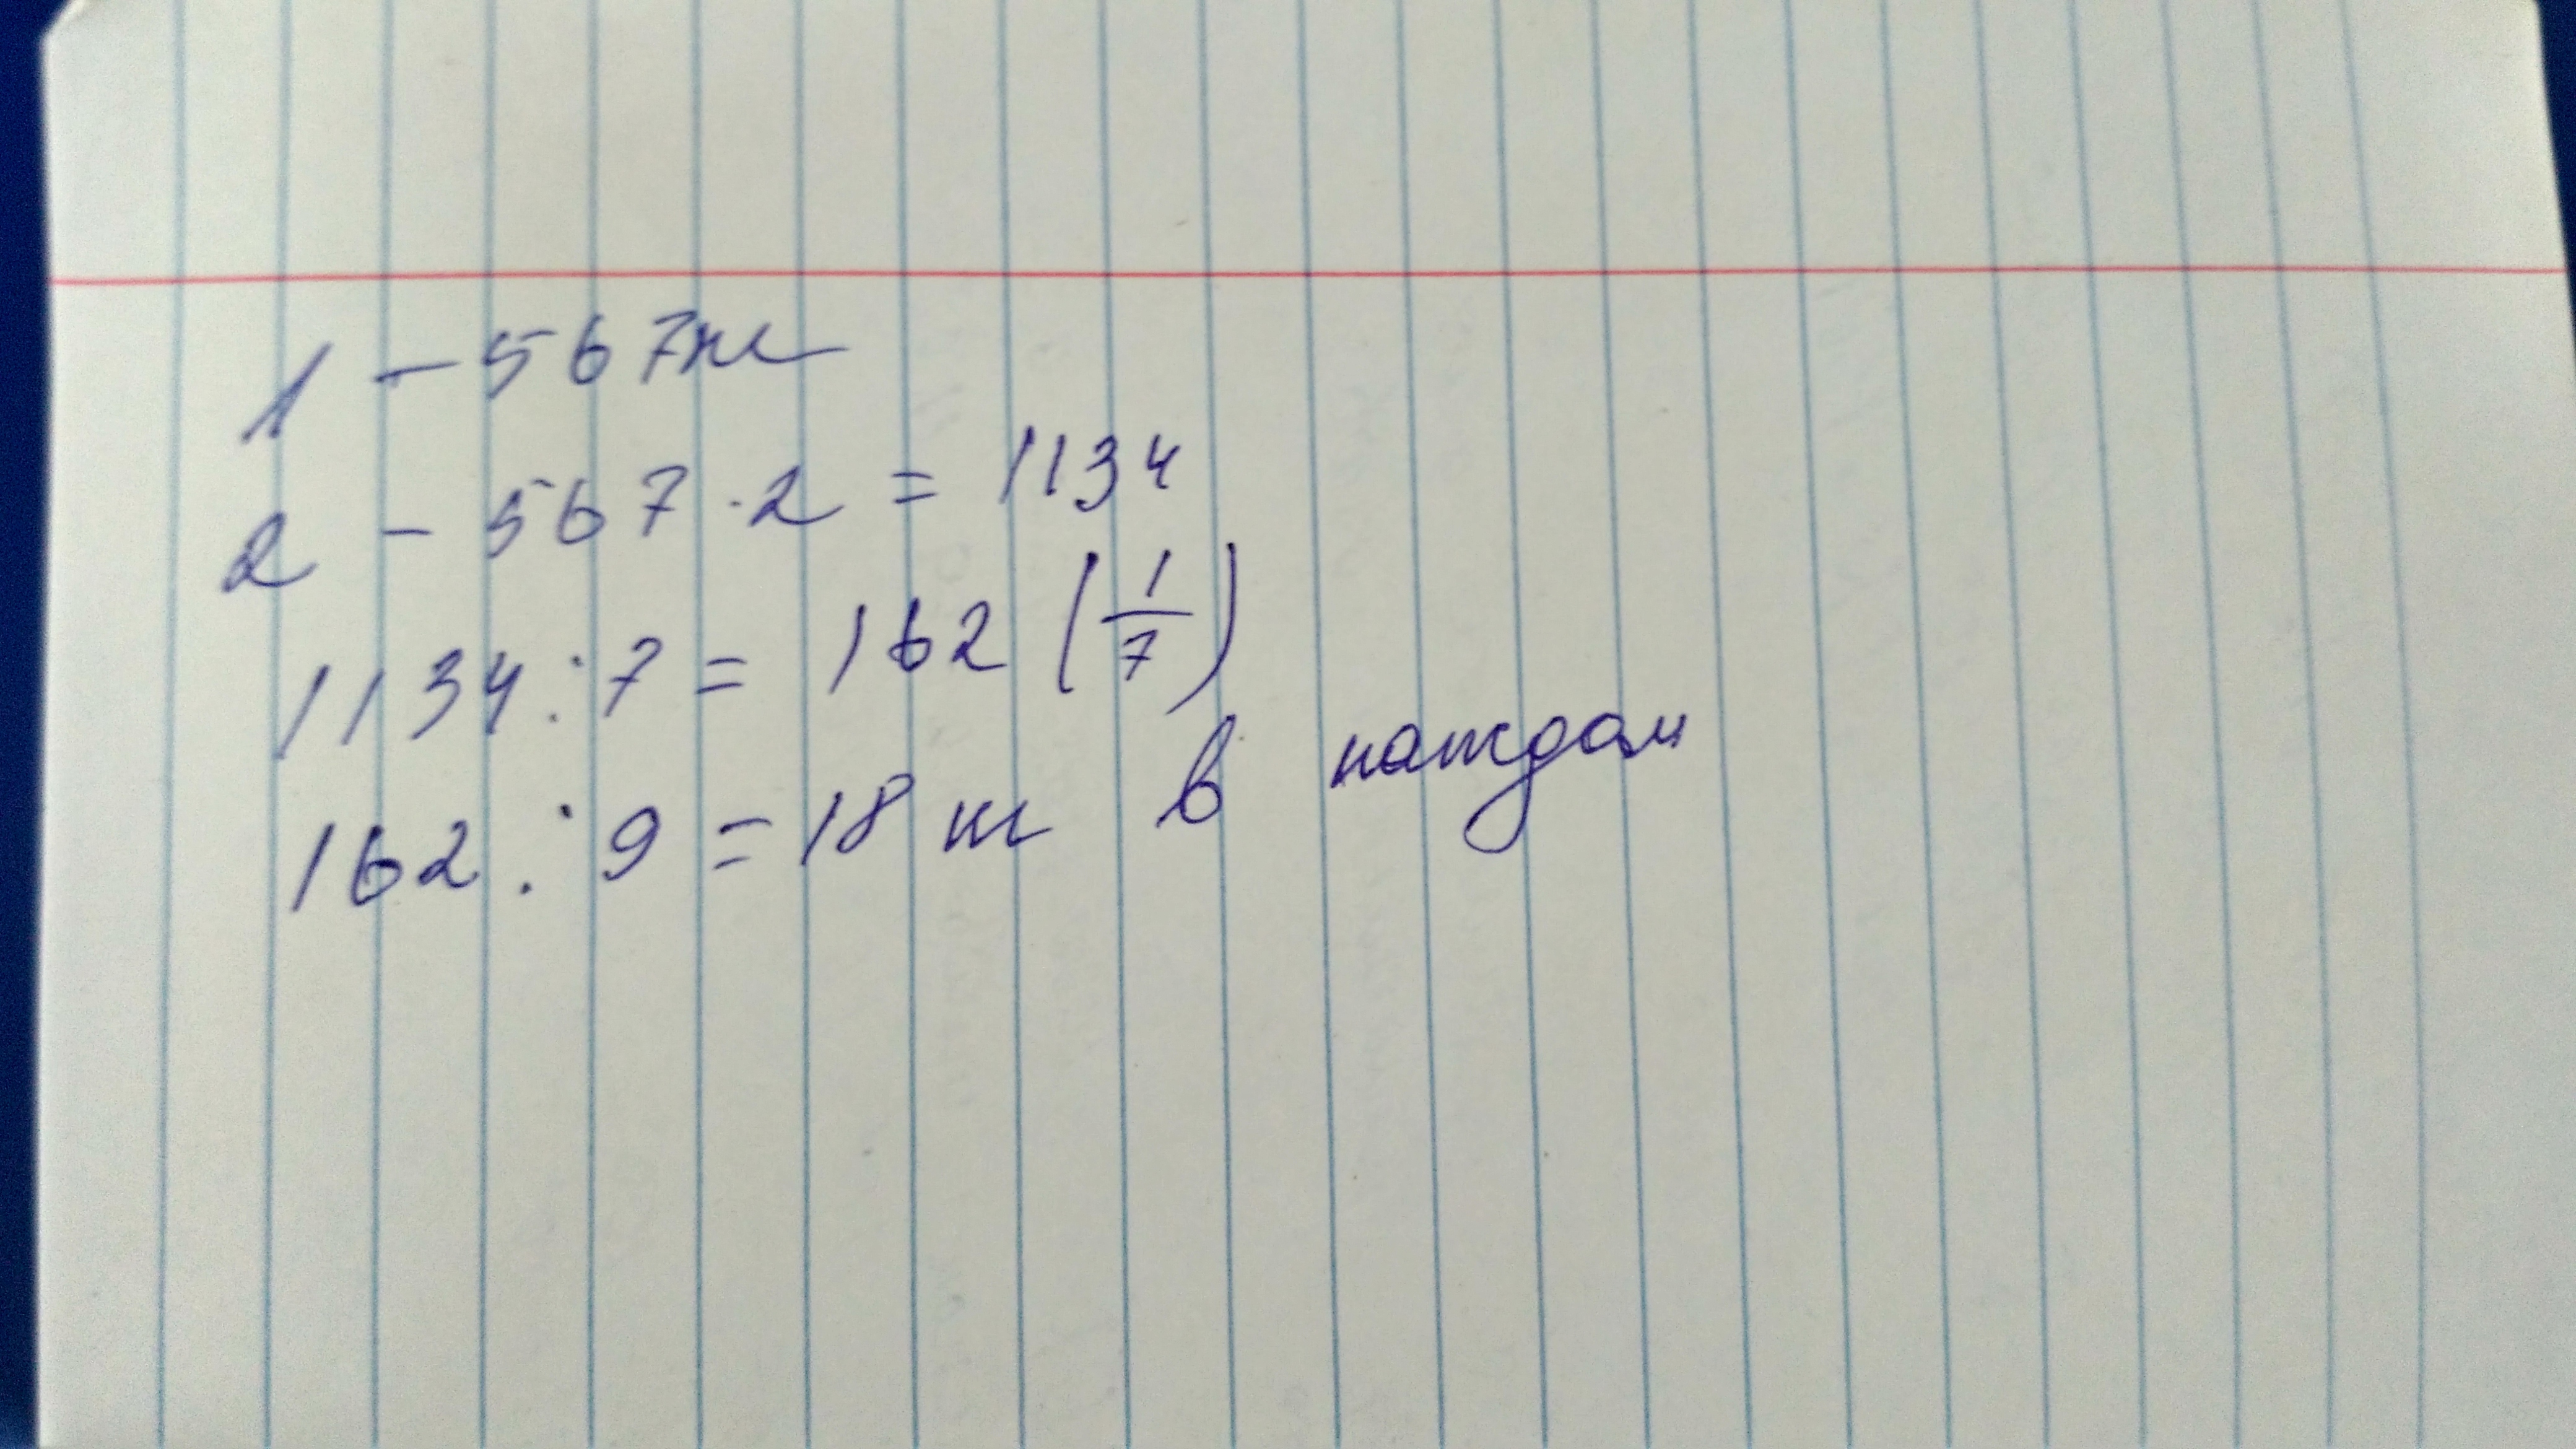 1 - 567 ш
2 - 567 · 2 = 1134
1134 : 7 = 162 (1/7)
162 : 9 = 18 ш в каждом